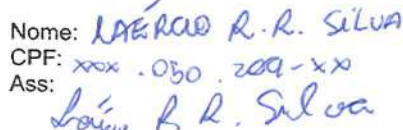 Nome: LAÉRCIO R.R. SILVA
CPF: xxx.050.209-xx
Ass:
Laércio R R. Silva